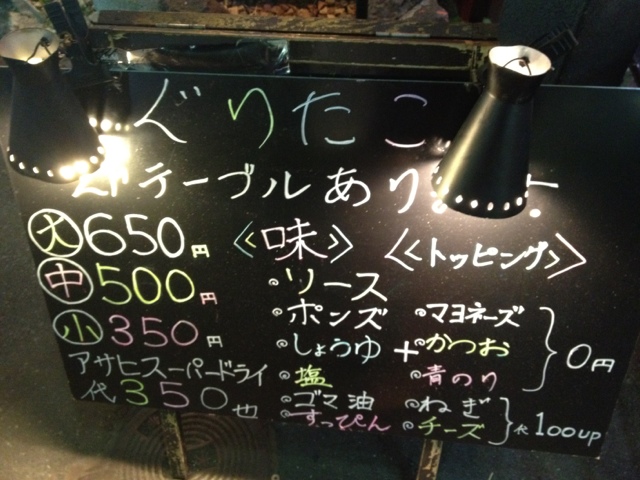 ぐりたこ
テーブルあり
大 650円
中 500円
小 350円
アサヒスーパードライ
代350也
≪味≫
ソース
ポンズ
しょうゆ
塩
ゴマ油
すっぴん
+
≪トッピング≫
マヨネーズ
かつお
青のり
0円
ねぎ
チーズ
代100up